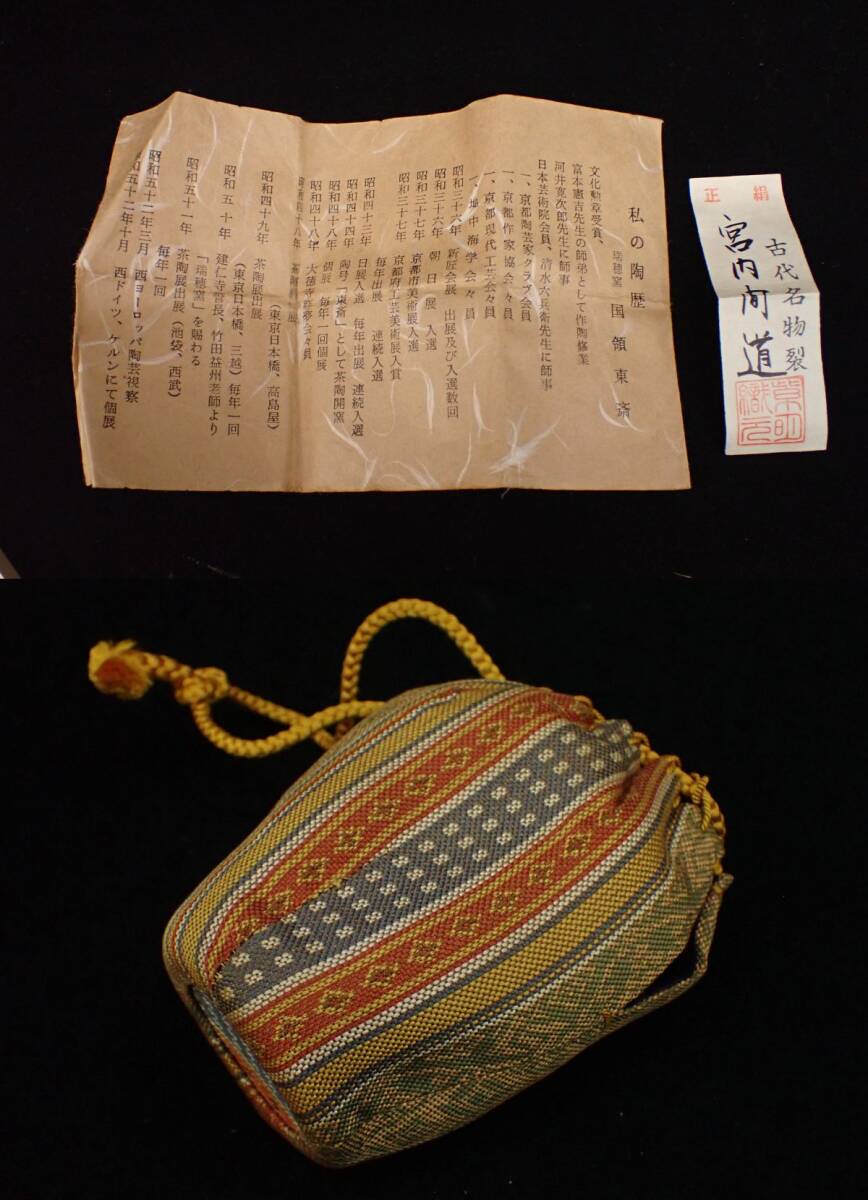 私の陶歴
瑞穂窯 国領東斎
文化勲章受賞、
富本憲吉先生の師弟として作陶修業
河井寛次郎先生に師事
日本芸術院会員、清水六兵衛先生に師事
一、京都陶芸家クラブ会員
一、京都作家協会々員
一、京都現代工芸会々員
一、地中海学会々員
昭和三十六年 新匠会展 出展及び入選数回
昭和三十六年 朝日展 入選
昭和三十七年 京都市美術展入選
昭和三十七年 京都府工芸美術展入賞
毎年出展 連続入選
昭和四十三年 日展入選 毎年出展 連続入選
昭和四十四年 陶号「東斎」として茶陶開窯
昭和四十八年 個展 毎年一回個展
昭和四十八年
昭和四十九年 茶陶展出展
(東京日本橋、高島屋)
(東京日本橋、三越)毎年一回
昭和五十年 建仁寺管長、竹田益州老師より
「瑞穂窯」を賜わる
昭和五十一年 茶陶展出展(池袋、西武)
毎年一回
昭和五十二年三月 西ヨーロッパ陶芸視察
昭和五十二年十月 西ドイツ、ケルンにて個展
正絹
古代名物裂
宮内間道